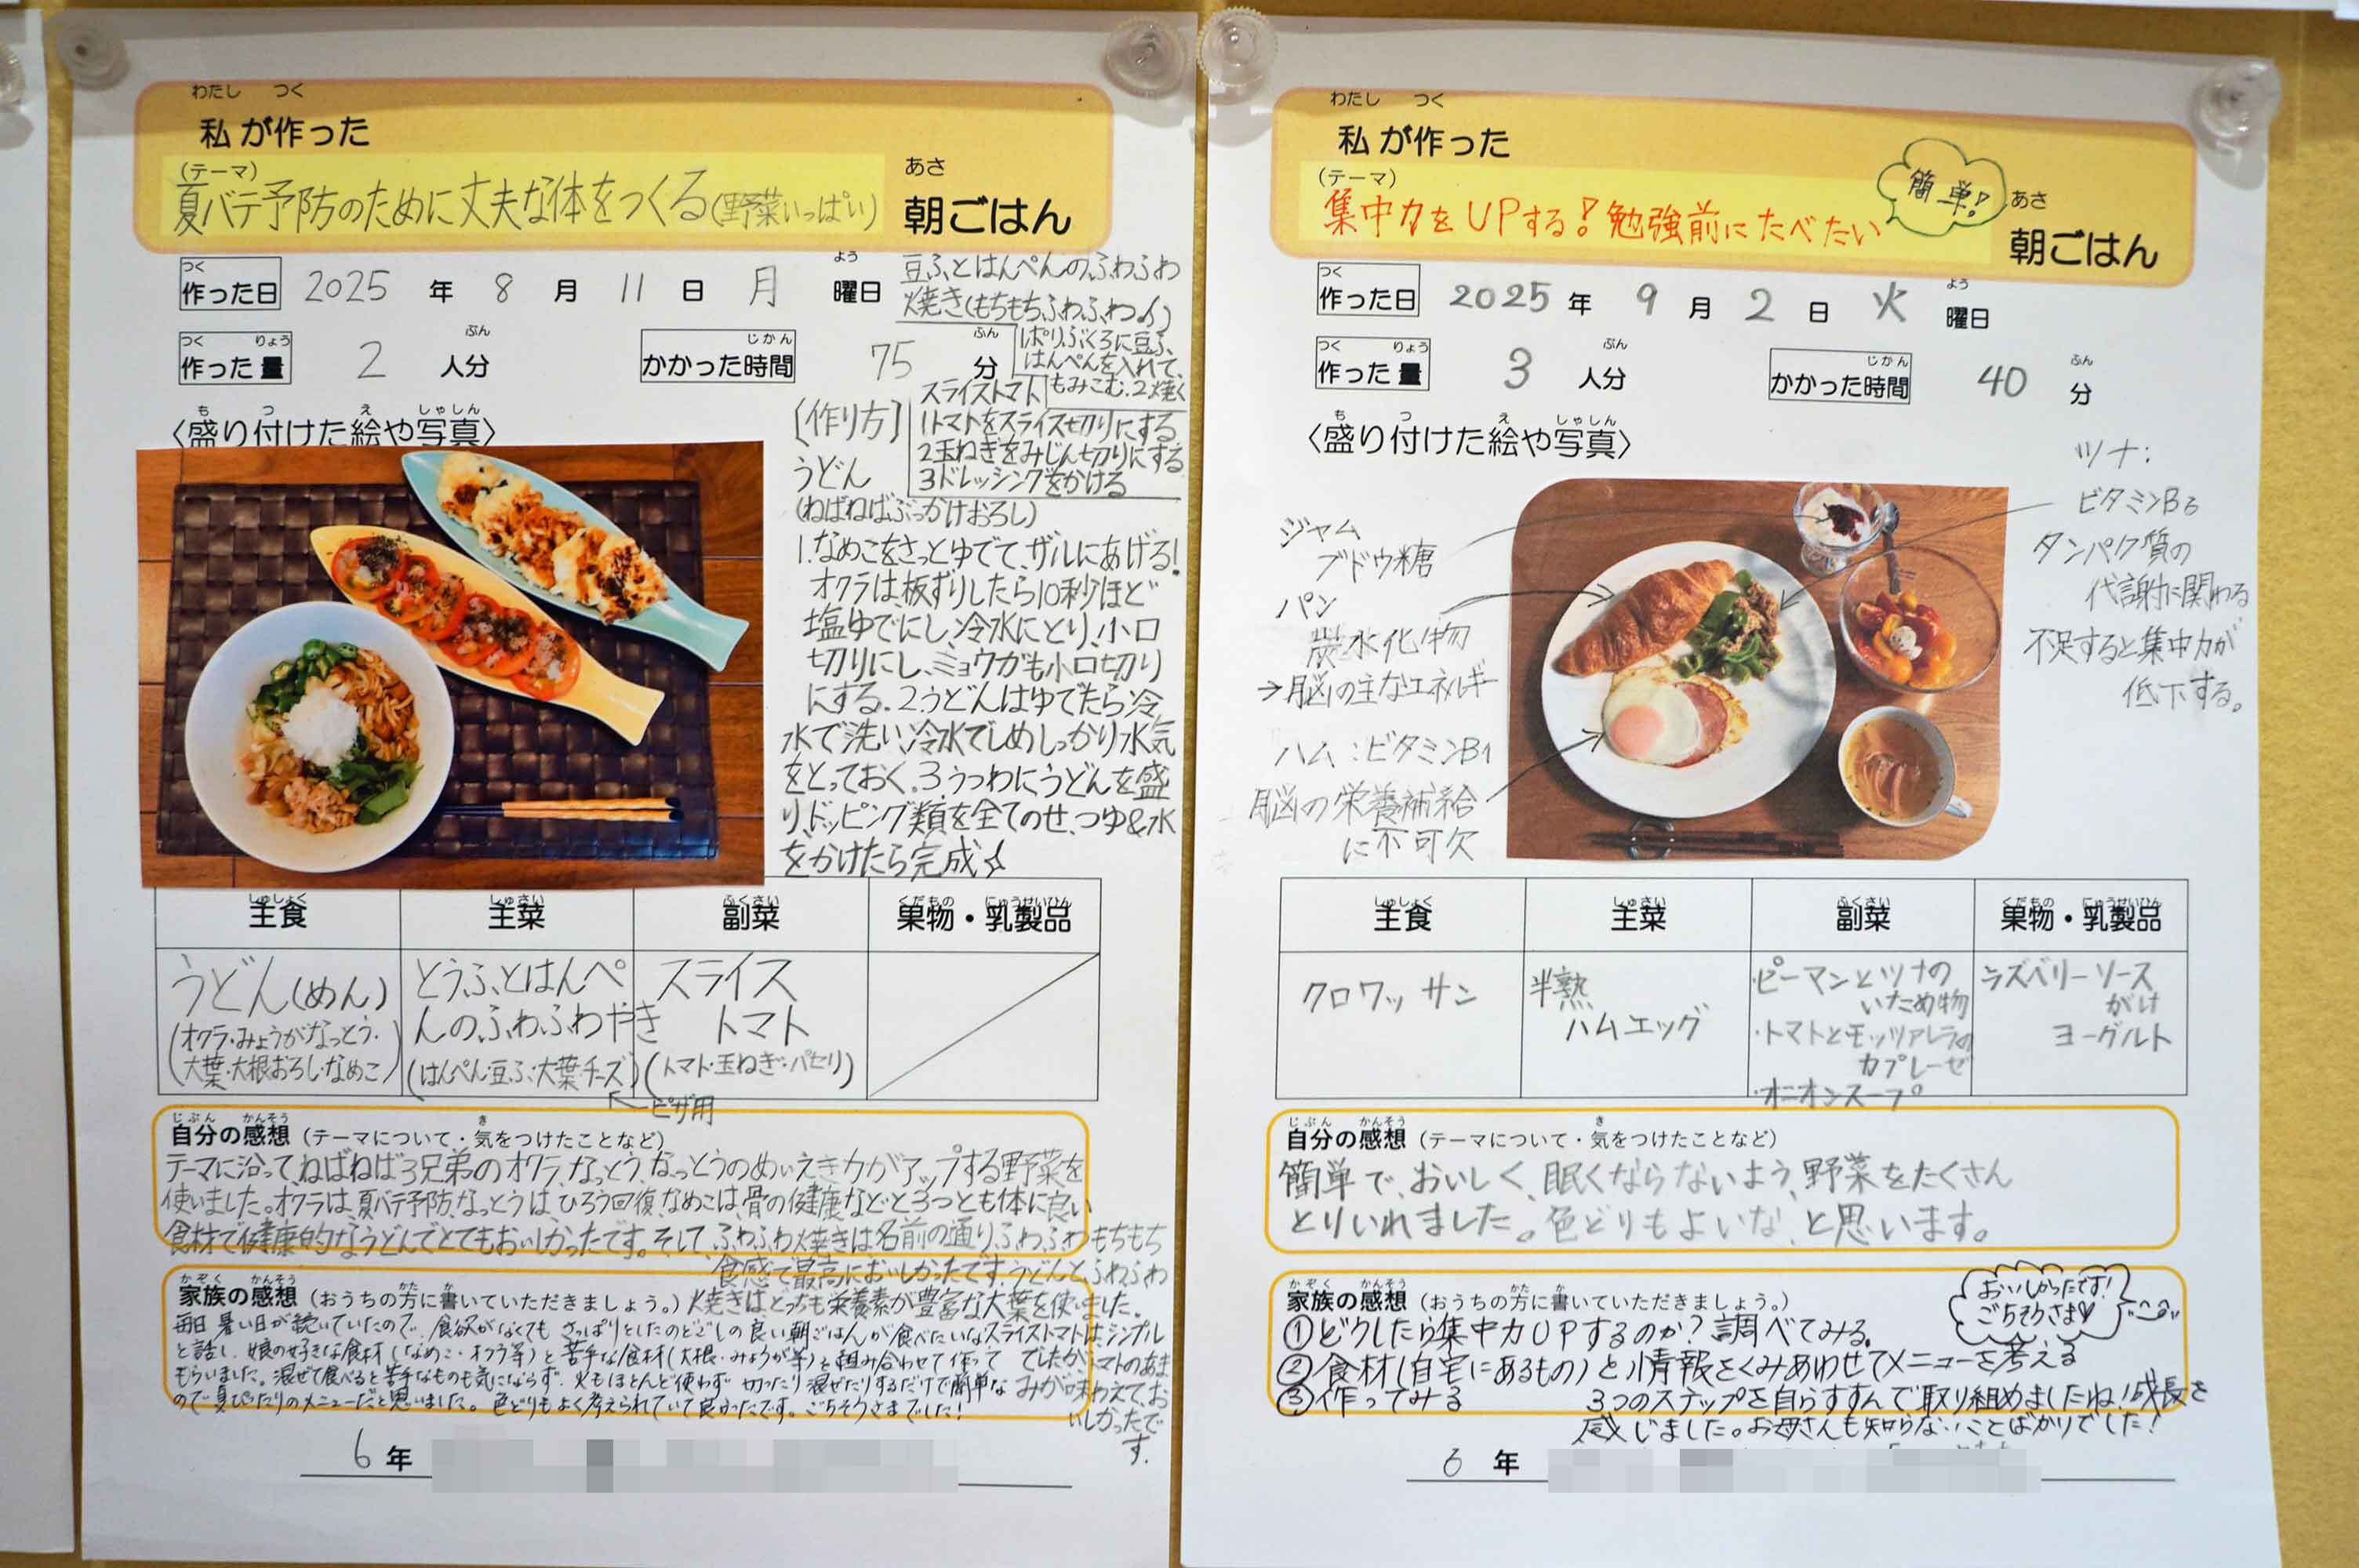 わたし つく
私が作った
(テーマ)
夏バテ予防のために丈夫な体をつくる(野菜いっぱい)
あさ
朝ごはん
つく
作った日 2025 年 8 月 11 日 月 よう 曜日
つく りょう
作った量 2 ぶん 人分
じかん
かかった時間 75 ふん 分
も つ え しゃしん
〈盛り付けた絵や写真〉
豆ふとはんぺんのふわふわ
焼き(もちもちふわふわ
ぽりぶくろに豆ふ、
はんぺんを入れて、
もみこむ。2焼く
スライストマト
1トマトをスライス切りにする
2玉ねぎをみじん切りにする
3ドレッシングをかける
[作り方]
うどん
(ねばねばぶっかけおろし)
1.なめこをさっとゆでて、ザルにあげる!
オクラは、板ずりしたら10秒ほど
塩ゆでにし、冷水にとり、小口
切りにし、ミョウガも小口切り
にする。2.うどんはゆでたら冷
水で洗い、冷水でしめしっかり水気
をとっておく。3.うつわにうどんを盛
り、トッピング類を全てのせ、つゆ&水
をかけたら完成☆
しゅしょく しゅさい ふくさい くだもの にゅうせいひん
主食 主菜 副菜 果物・乳製品
うどん(めん)
(オクラ・みょうがなっとう・
大葉・大根おろし・なめこ)
とうふとはんぺ
んのふわふわやき
(はんぺん・豆ふ・大葉・チーズ)
ピザ用
スライス
トマト
(トマト・玉ねぎ・パセリ)
じぶん かんそう き
自分の感想(テーマについて・気をつけたことなど)
テーマに沿って、ねばねば3兄弟のオクラ、なっとう、なっとうのめんえき力がアップする野菜を
使いました。オクラは、夏バテ予防、なっとうは、ひろう回復、なめこは、骨の健康などと3つとも体に良い
食材で健康的なうどんでとてもおいしかったです。そして、ふわふわ焼きは名前の通りふわふわもちもち
食感で最高においしかったです。うどんと、ふわふわ
焼きはどっちも栄養素が豊富な大葉を使いました。
スライストマトは、シンプル
でしたが、トマトのあま
みが味わえて、お
いしかったで
す。
かぞく かんそう かた か
家族の感想(おうちの方に書いていただきましょう。)
毎日 暑い日が続いていたので、食欲がなくても さっぱりとしたのどごしの良い朝ごはんが食べたいな
と話し、娘の好きな食材(なめこ・オクラ等)と苦手な食材(大根・みょうが等)を組み合わせて作って
もらいました。混ぜて食べると苦手なものも気にならず、火もほとんど使わず 切ったり混ぜたりするだけで簡単な
ので夏ぴったりのメニューだと思いました。色どりもよく考えられていて良かったです。ごちそうさまでした!
6 年
わたし つく
私が作った
(テーマ)
集中力をUPする!勉強前にたべたい
簡単!
あさ
朝ごはん
つく
作った日 2025 年 9 月 2 日 火 よう 曜日
つく りょう
作った量 3 ぶん 人分
じかん
かかった時間 40 ふん 分
も つ え しゃしん
〈盛り付けた絵や写真〉
ジャム
ブドウ糖
パン
炭水化物
→脳の主なエネルギー
ハム:ビタミンB1
脳の栄養補給
に不可欠
ツナ:
ビタミンB6
タンパク質の
代謝に関わる
不足すると集中力が
低下する。
しゅしょく しゅさい ふくさい くだもの にゅうせいひん
主食 主菜 副菜 果物・乳製品
クロワッサン
半熟
ハムエッグ
・ピーマンとツナの
いため物
・トマトとモッツァレラの
カプレーゼ
・オニオンスープ
ラズベリーソース
がけ
ヨーグルト
じぶん かんそう き
自分の感想(テーマについて・気をつけたことなど)
簡単で、おいしく、眠くならないよう、野菜をたくさん
とりいれました。色どりもよいな、と思います。
かぞく かんそう かた か
家族の感想(おうちの方に書いていただきましょう。)
おいしかったです!
ごちそうさま♡
①どうしたら集中力UPするのか?調べてみる。
②食材(自宅にあるもの)と情報をくみあわせてメニューを考える
③作ってみる 3つのステップを自らすすんで取り組めましたね!成長を
感じました。お母さんも知らないことばかりでした!
6 年